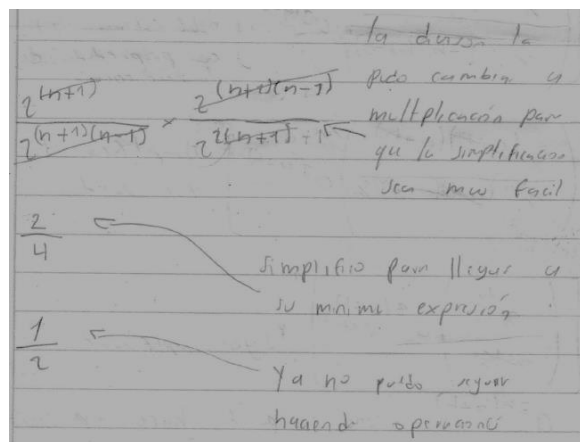 la division la
puedo cambia a
multplicación para
que la simplificacion
sea mas facil
2^(n+1) / 2^(n+1)(n-1) × 2^(n+1)(n-1) / 2^2(n+1)
2/4
simplifico para llegar a
su minima expresión
1/2
Ya no puedo seguir
haciend operacion